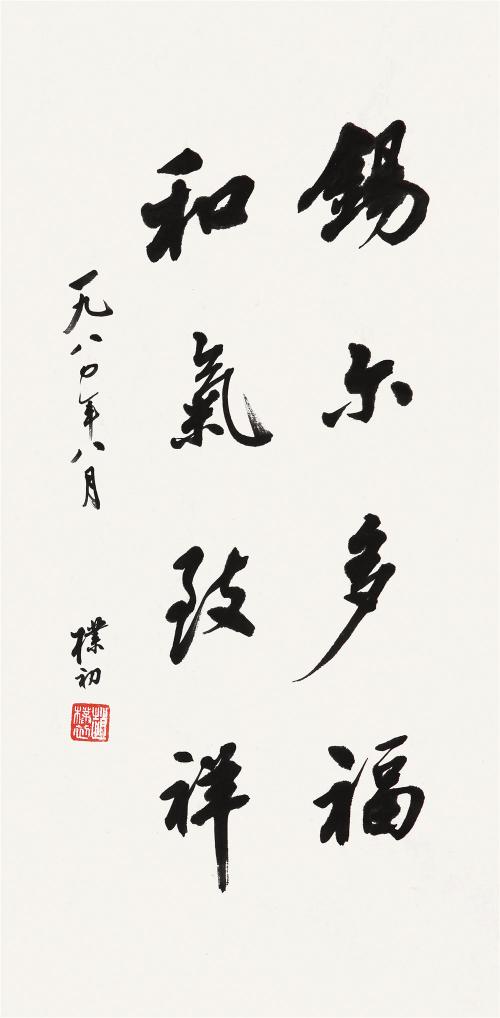 锡尔多福
和氣致祥
一九八〇年八月
樸初
趙樸初